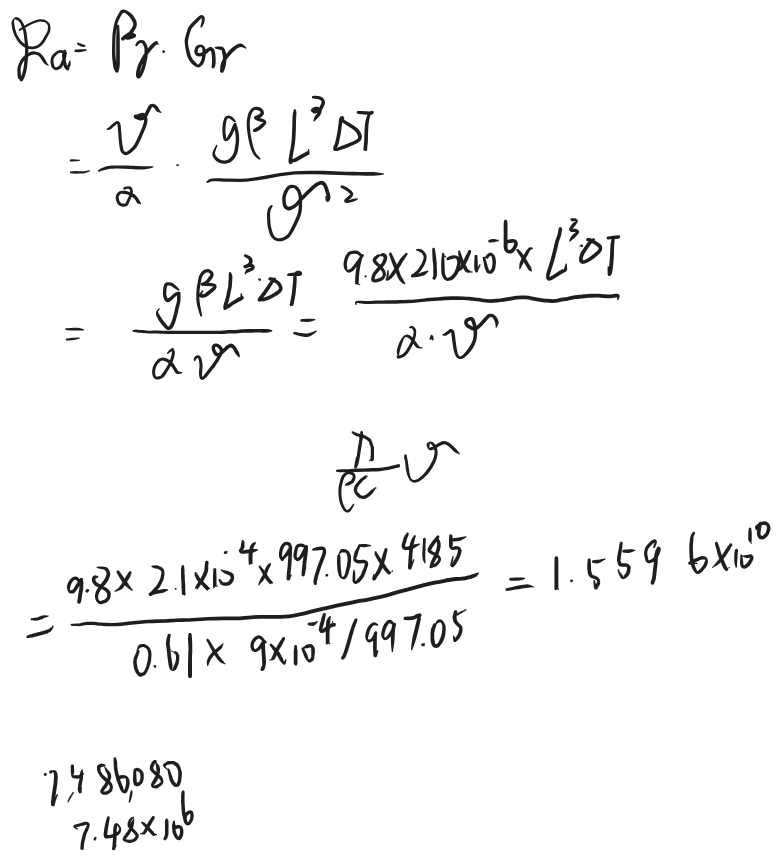 Ra = Pr · Gr
= ν/α · gβL³ΔT/ν²
= gβL³ΔT/αν = 9.8×210×10⁻⁶×L³ΔT/α·ν
λ/ρc ν
= 9.8×2.1×10⁻⁴×997.05×4185/0.61×9×10⁻⁴/997.05 = 1.5596×10¹⁰
7,486,080
7.48×10⁶